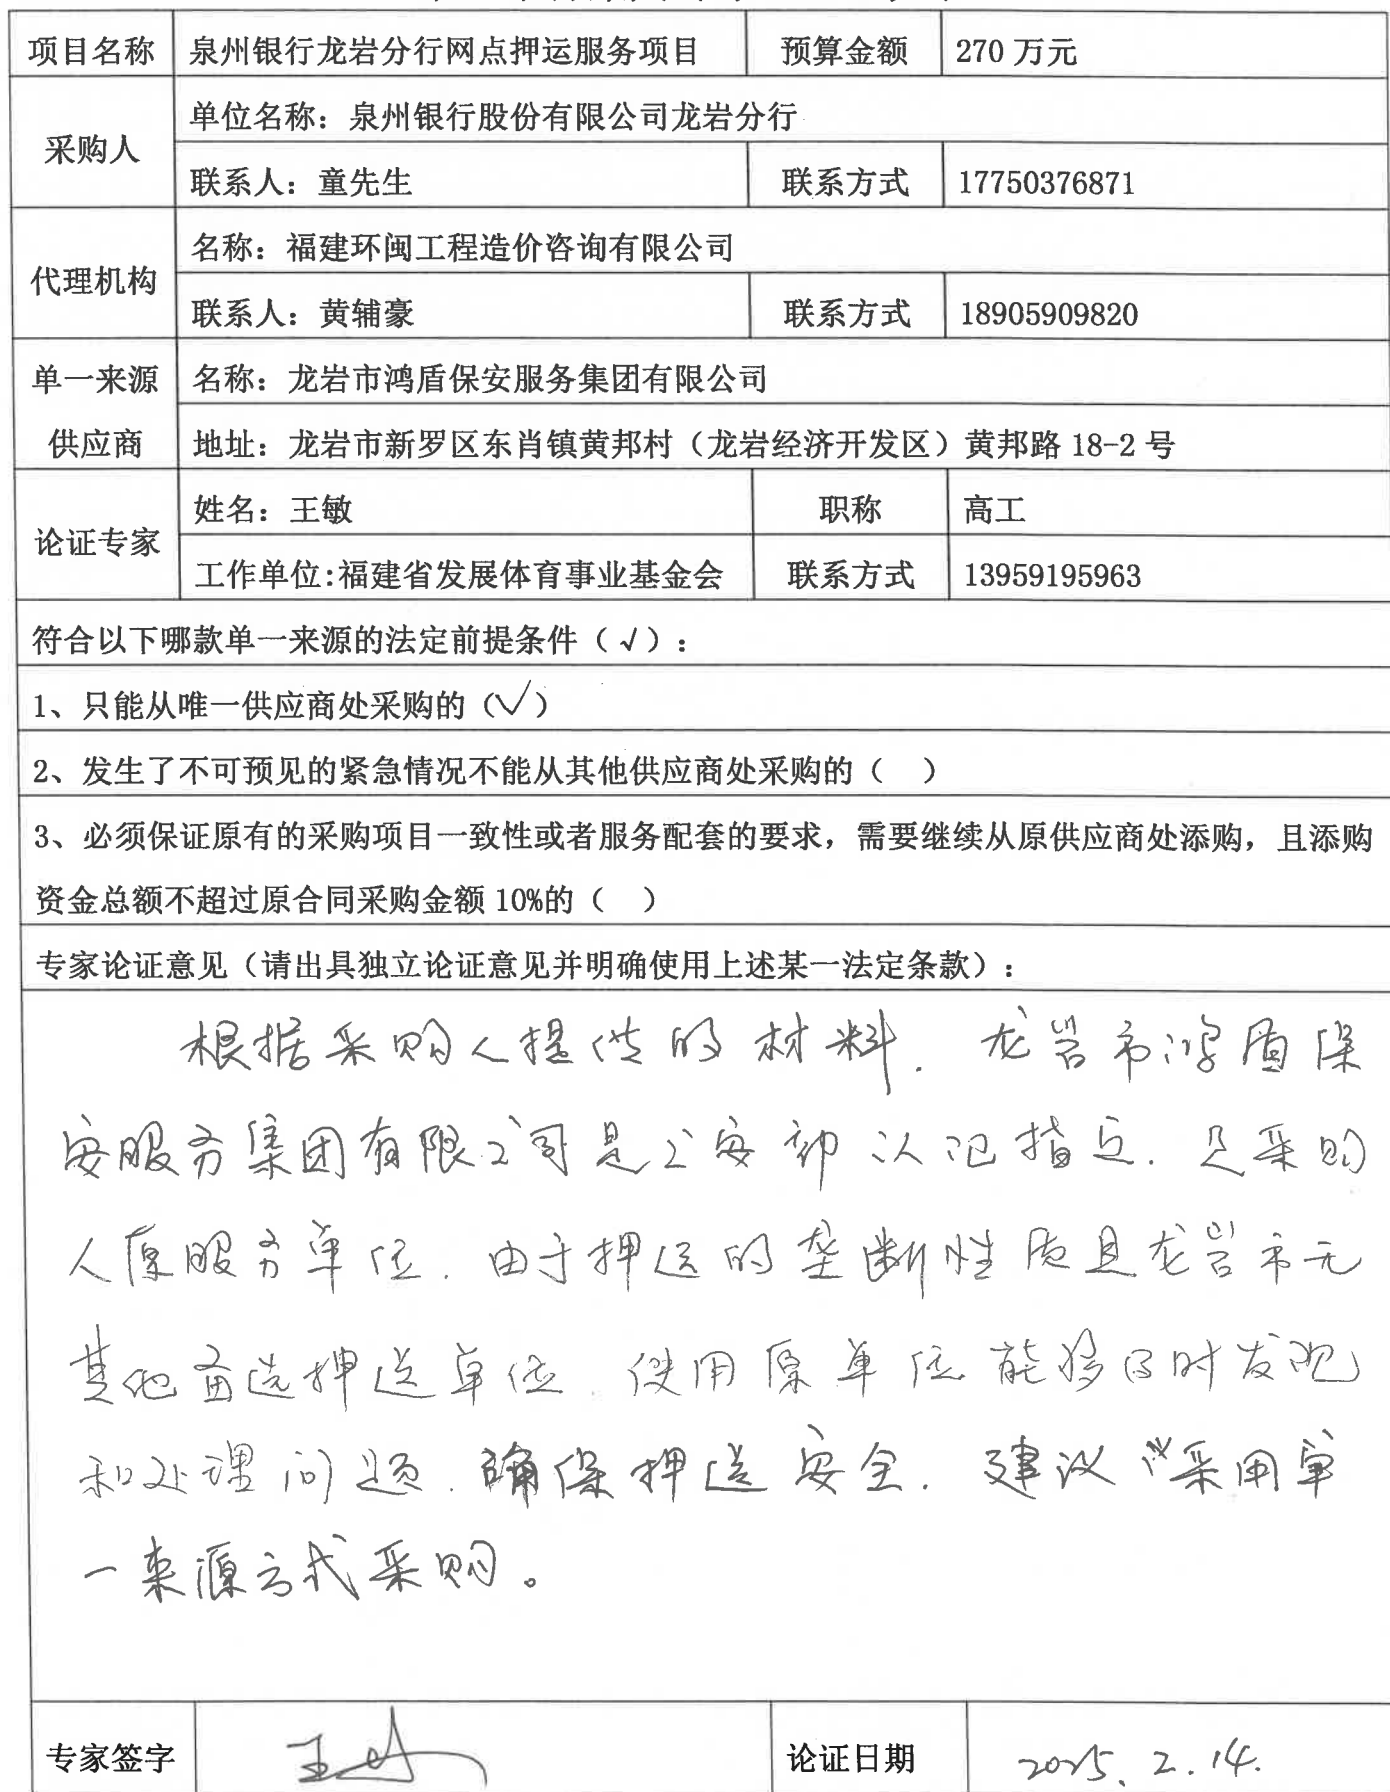 项目名称 泉州银行龙岩分行网点押运服务项目 预算金额 270 万元
采购人 单位名称：泉州银行股份有限公司龙岩分行
联系人：童先生 联系方式 17750376871
代理机构 名称：福建环闽工程造价咨询有限公司
联系人：黄辅豪 联系方式 18905909820
单一来源 名称：龙岩市鸿盾保安服务集团有限公司
供应商 地址：龙岩市新罗区东肖镇黄邦村（龙岩经济开发区）黄邦路 18-2 号
论证专家 姓名：王敏 职称 高工
工作单位:福建省发展体育事业基金会 联系方式 13959195963
符合以下哪款单一来源的法定前提条件（√）：
1、只能从唯一供应商处采购的（√）
2、发生了不可预见的紧急情况不能从其他供应商处采购的（ ）
3、必须保证原有的采购项目一致性或者服务配套的要求，需要继续从原供应商处添购，且添购
资金总额不超过原合同采购金额 10%的（ ）
专家论证意见（请出具独立论证意见并明确使用上述某一法定条款）：
根据采购人提供的材料．龙岩市鸿盾保
安服务集团有限公司是公安部认记指定．是采购
人原服务单位．由于押运的垄断性质且龙岩市无
其他备选押送单位 使用原单位能够及时发现
和处理问题．确保押送安全．建议采用单
一来源方式采购。
专家签字 王 论证日期 2025.2.14.